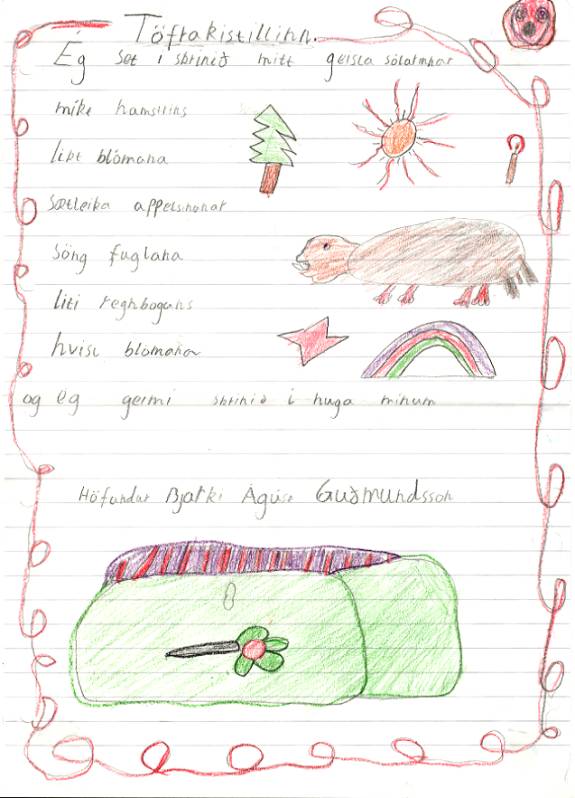 Töfrakistillinn.
Ég set í skrínið mitt geisla sólarinnar
mike hamsturs
likt blómana
sætleika appelsinunar
söng fuglana
liti regnbogans
hvísl blómanar
og ég geimi skrínið í huga mínum
Höfundur Bjarki Ágúst Guðmundsson